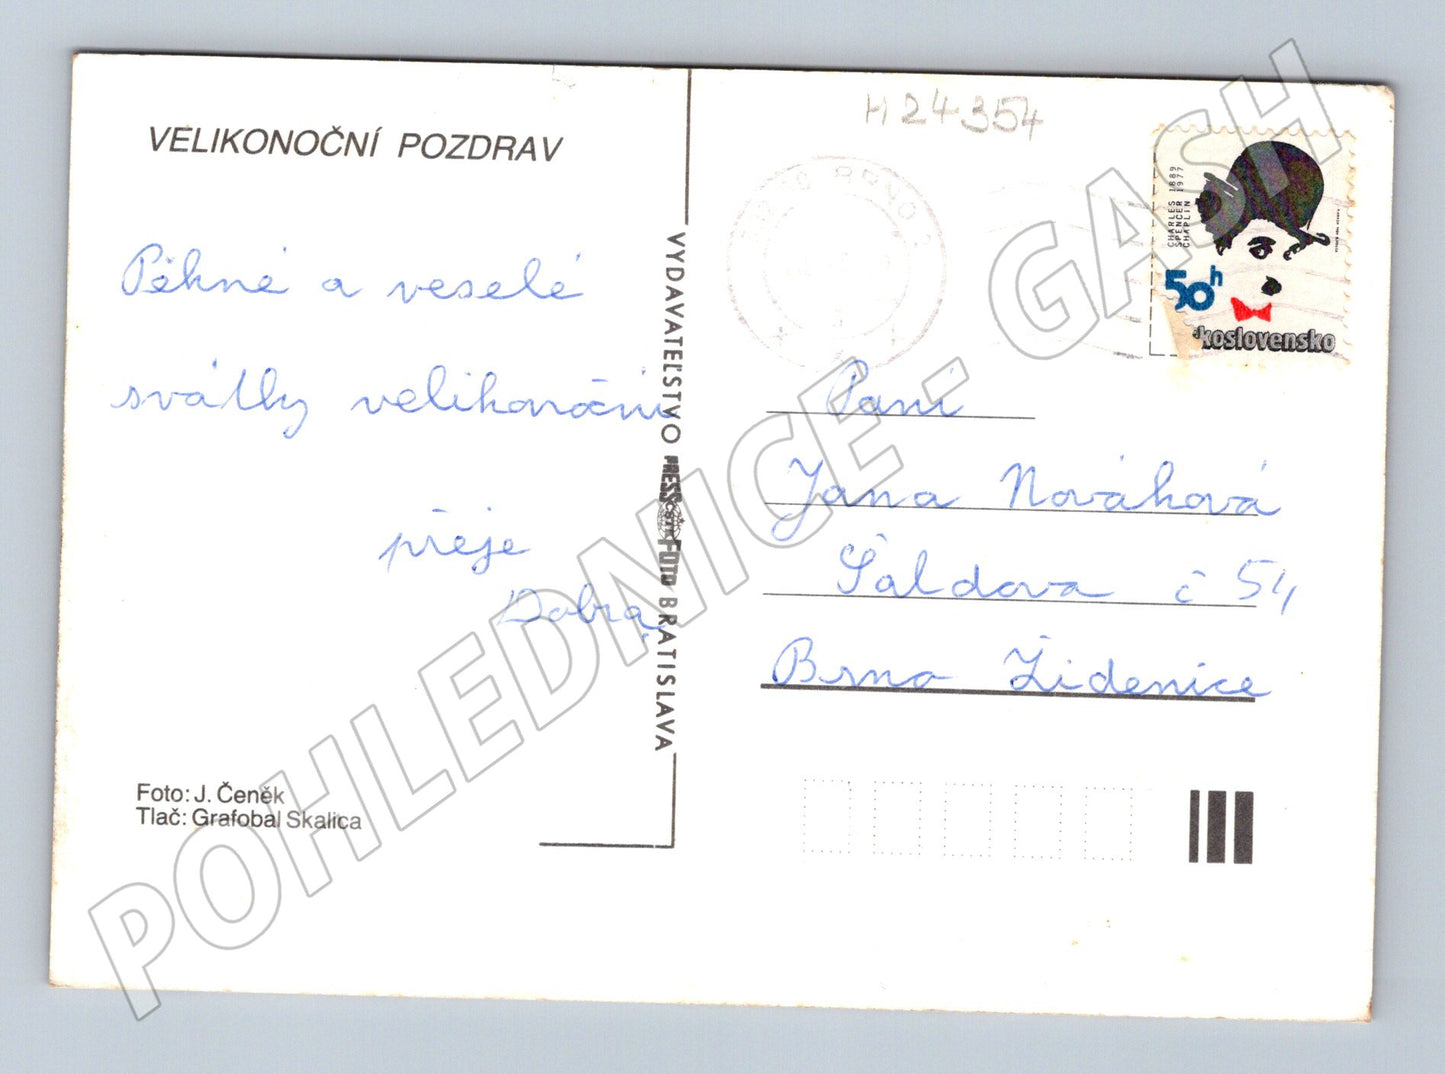 H24354
VELIKONOČNÍ POZDRAV
Pěkné a veselé
svátky velikonoční
přeje
Dobra
Foto: J. Čeněk
Tlač: Grafobal Skalica
VYDAVATEĽSTVO PRESSFOTO BRATISLAVA
BRNO 2
CHARLES 1889
SPENCER 1977
CHAPLIN
50h
koslovensko
Paní
Jana Nováková
Šaldova č 54,
Brno Židenice
POHLEDNICE - GASH